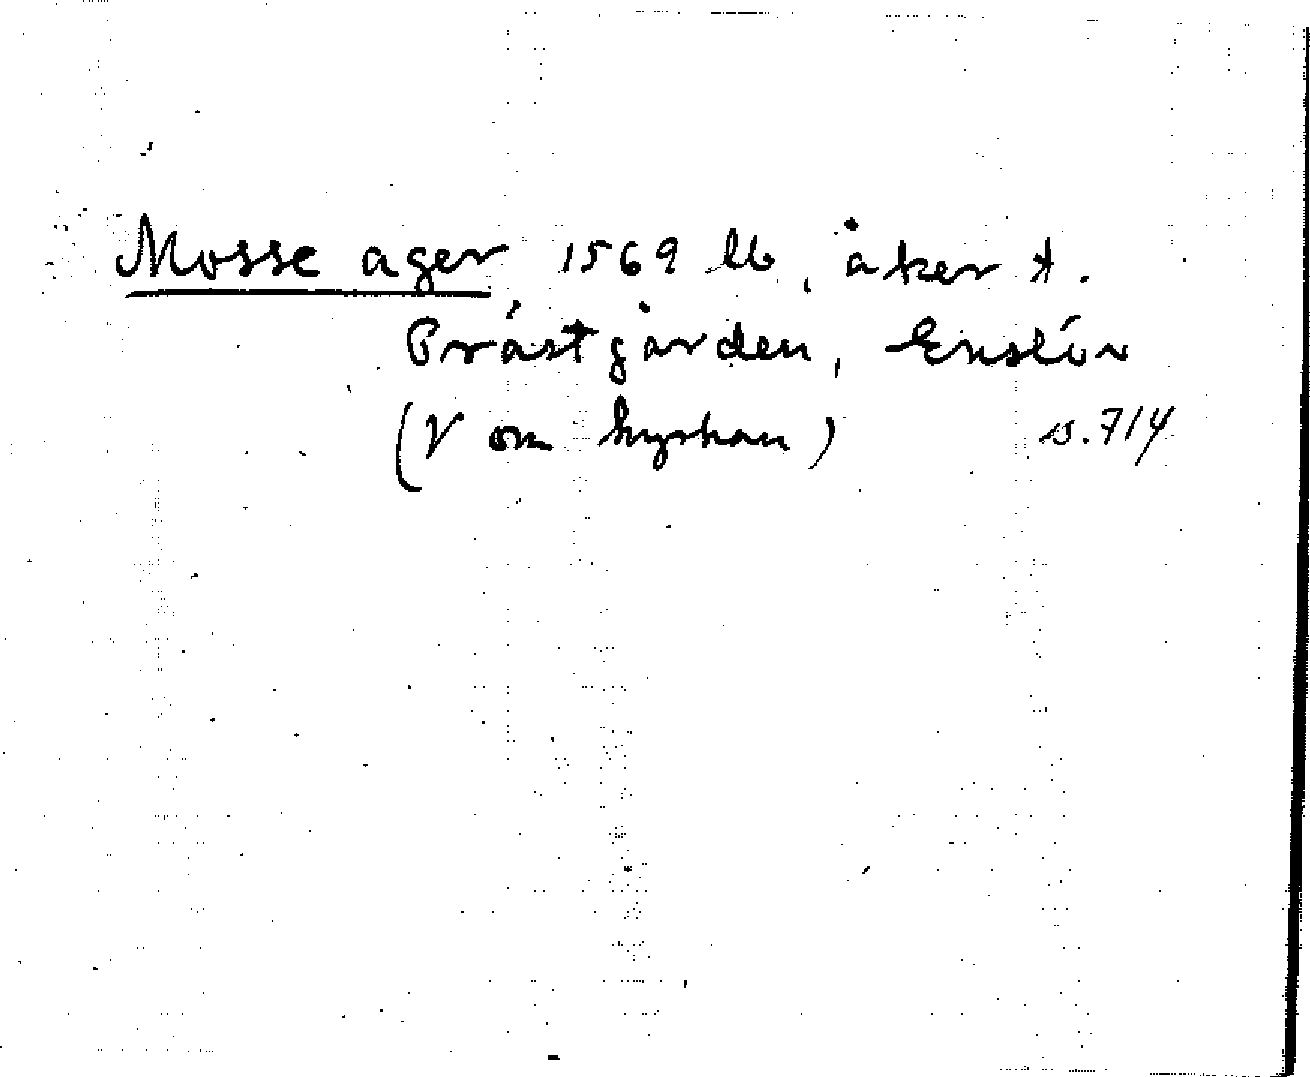 Mosse ager 1569 lb, åker t.
Prästgården, Enslöv
(V om kyrkan) s. 714